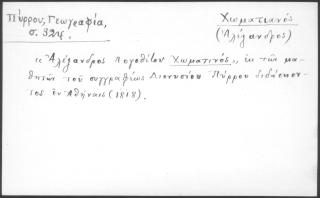 Πύρρου, Γεωγραφία,
σ. 324.
Χωματιανός
(Ἀλέξανδρος)
« Ἀλέξανδρος Λογοθέτου Χωματινός,, ἐκ τῶν μα-
θητῶν τοῦ συγγραφέως Διονυσίου Πύρρου διδάσκον-
τος ἐν Ἀθήναις (1818).